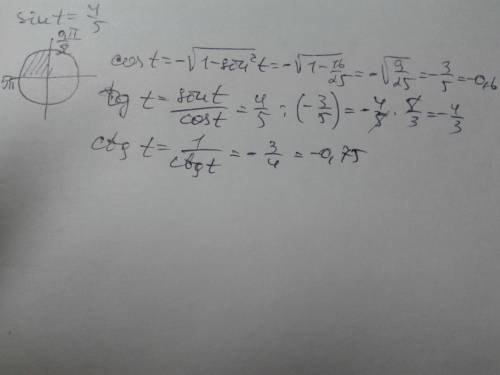 sin t = 4/5
9π/2
5π
cos t = -√(1-sin²t) = -√(1-16/25) = -√(9/25) = -3/5 = -0,6
tg t = sin t/cos t = 4/5 : (-3/5) = -4/5 · 5/3 = -4/3
ctg t = 1/ctg t = -3/4 = -0,75